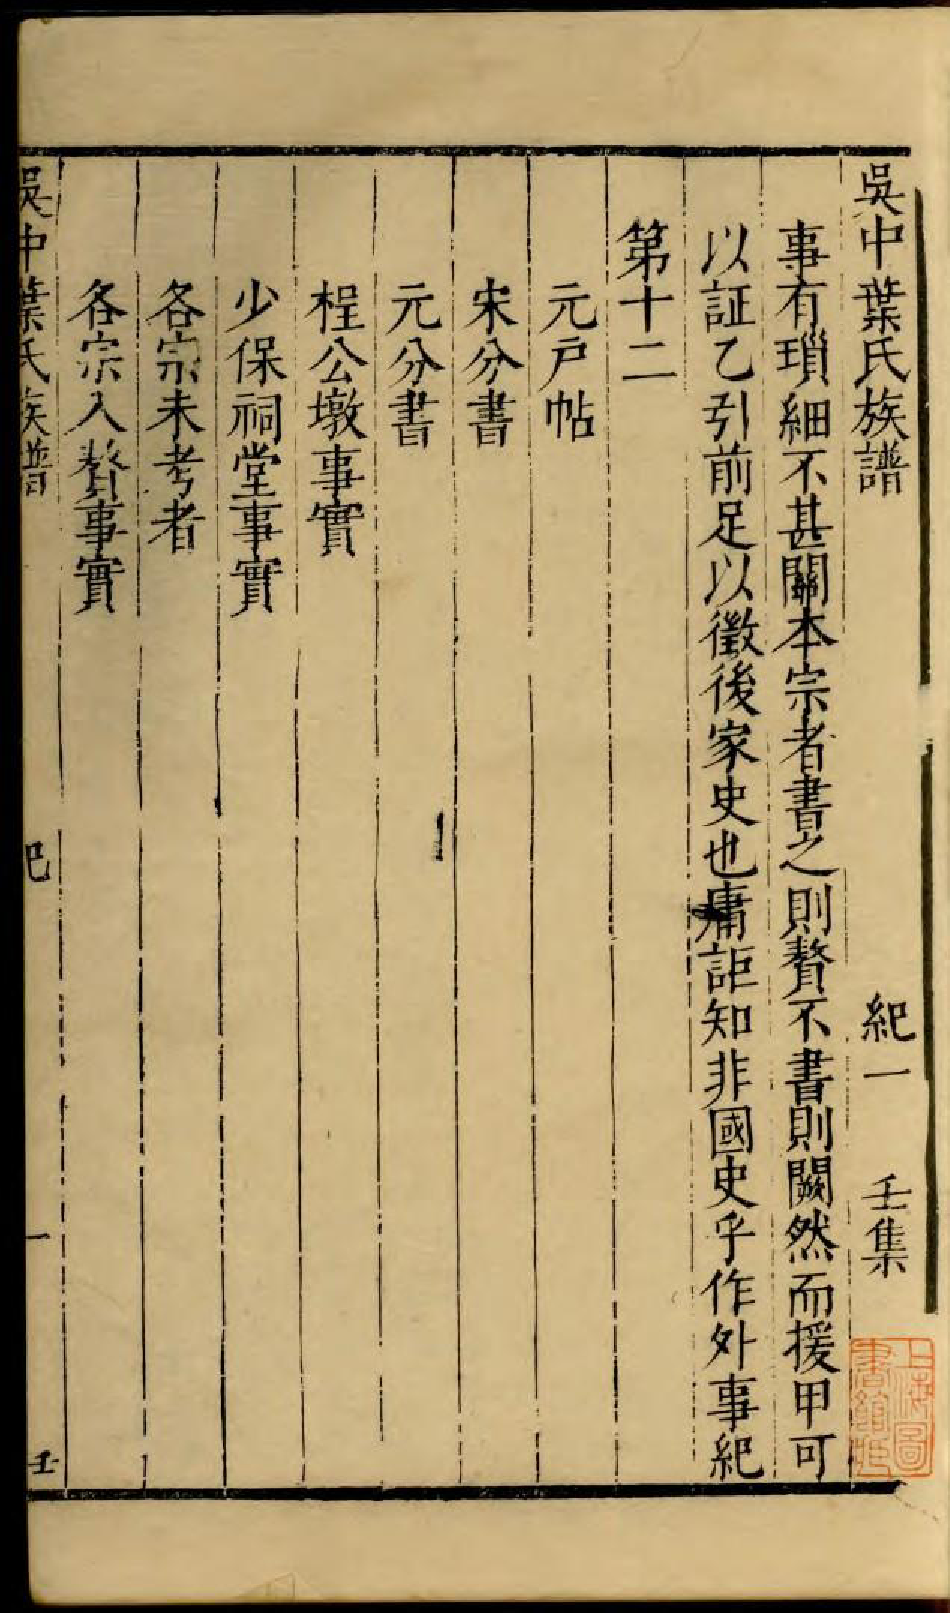 吳中葉氏族譜 紀一 壬集
事有瑣細不甚關本宗者書之則贅不書則闕然而援甲可
以証乙引前足以徵後家史也庸詎知非國史乎作外事紀
第十二
元戸帖
宋分書
元分書
桯公墩事實
少保祠堂事實
各宗未考者
各宗入贅事實
吳中葉氏族譜 紀 一 壬
上海圖書館藏